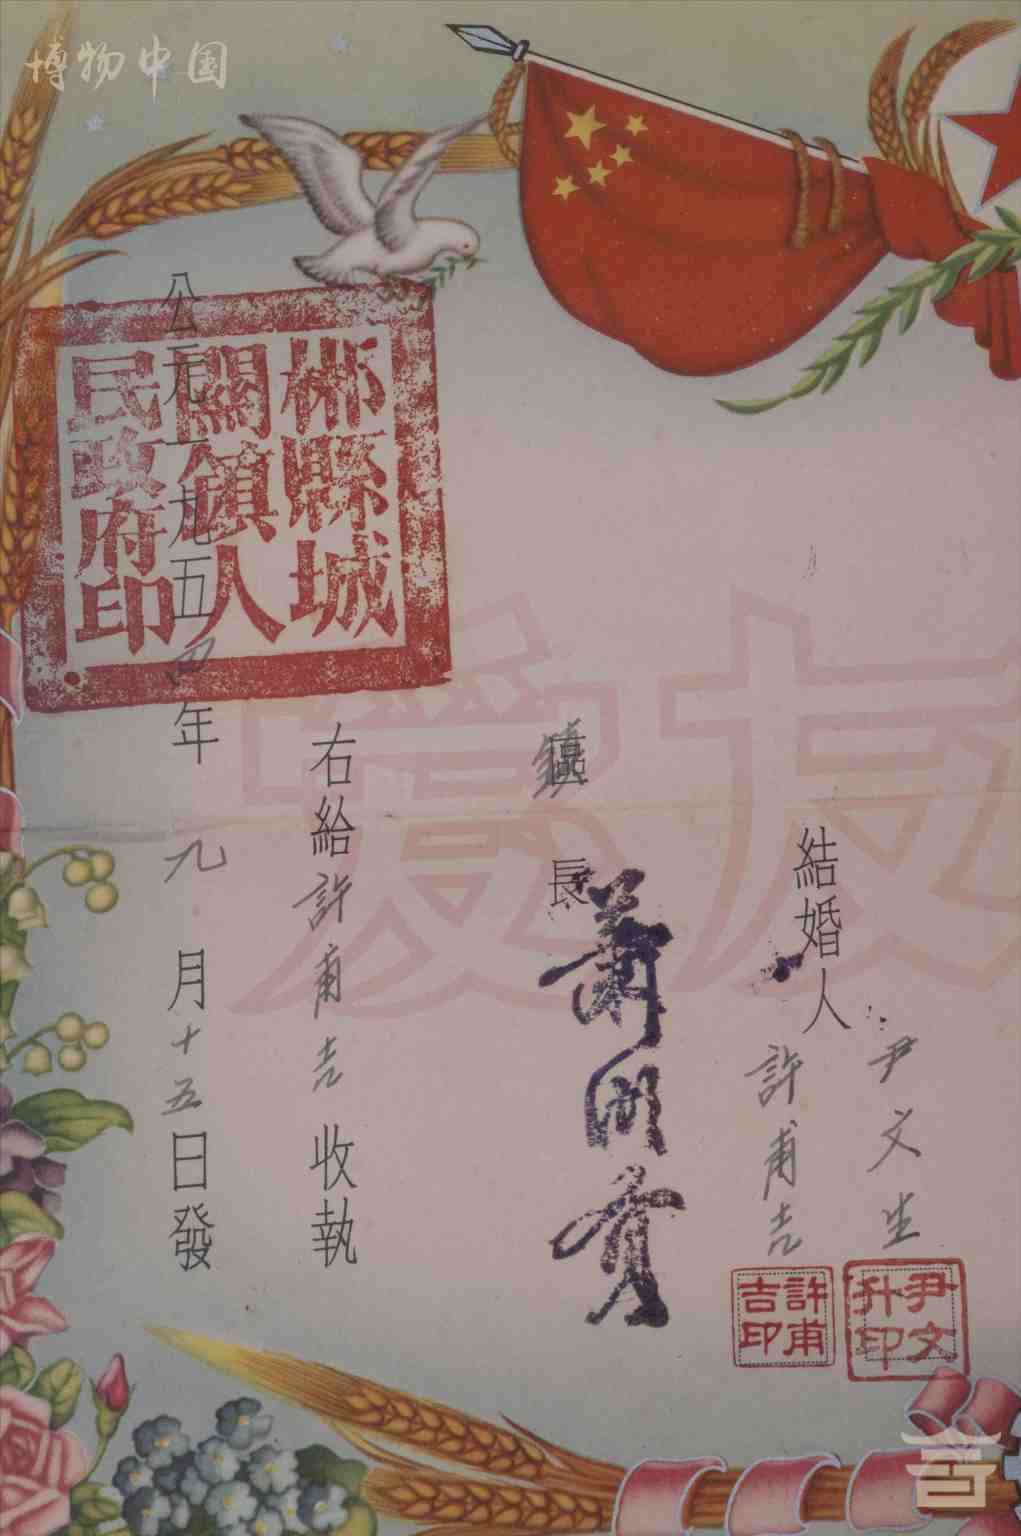 博物中国
友愛
結婚人
尹文生
許甫吉
尹文升印
許甫吉印
鎮長
蕭明貴
右給許甫吉收執
公元一九五四年九月十五日發
郴縣城
關鎮人
民政府印